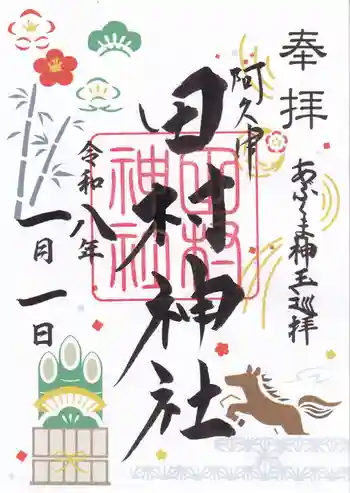 奉拝
あぶくま神玉巡拝
阿久津
田村神社
田村神社
令和八年
一月一日